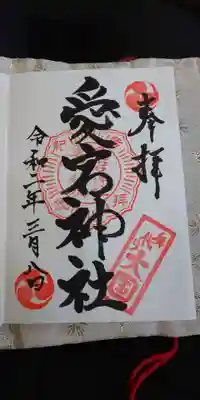 奉拝
愛宕神社
令和二年三月八日